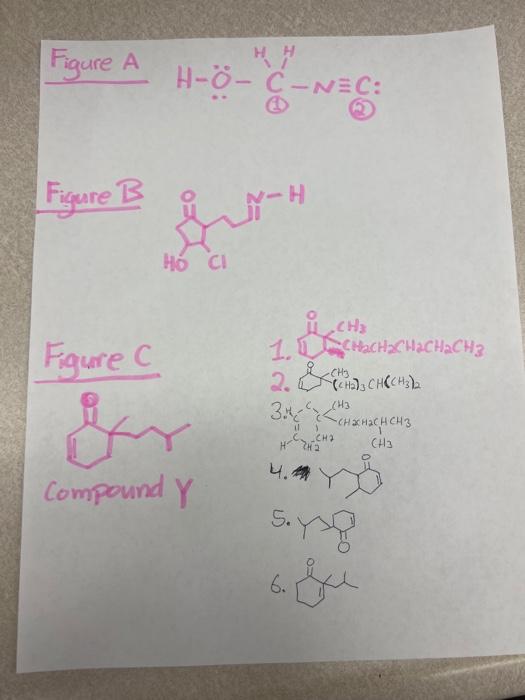 Figure A
H H
H-Ö-C-N≡C:
① ②
Figure B
O N-H
HO Cl
Figure C
O
Compound Y
1. O CH3
CH2CH2CH2CH2CH3
2. O CH3
(CH2)3CH(CH3)2
3. H C C CH3
C CH2CH2CHCH3
H C CH2 CH3
CH2
4. O
5. O
6. O